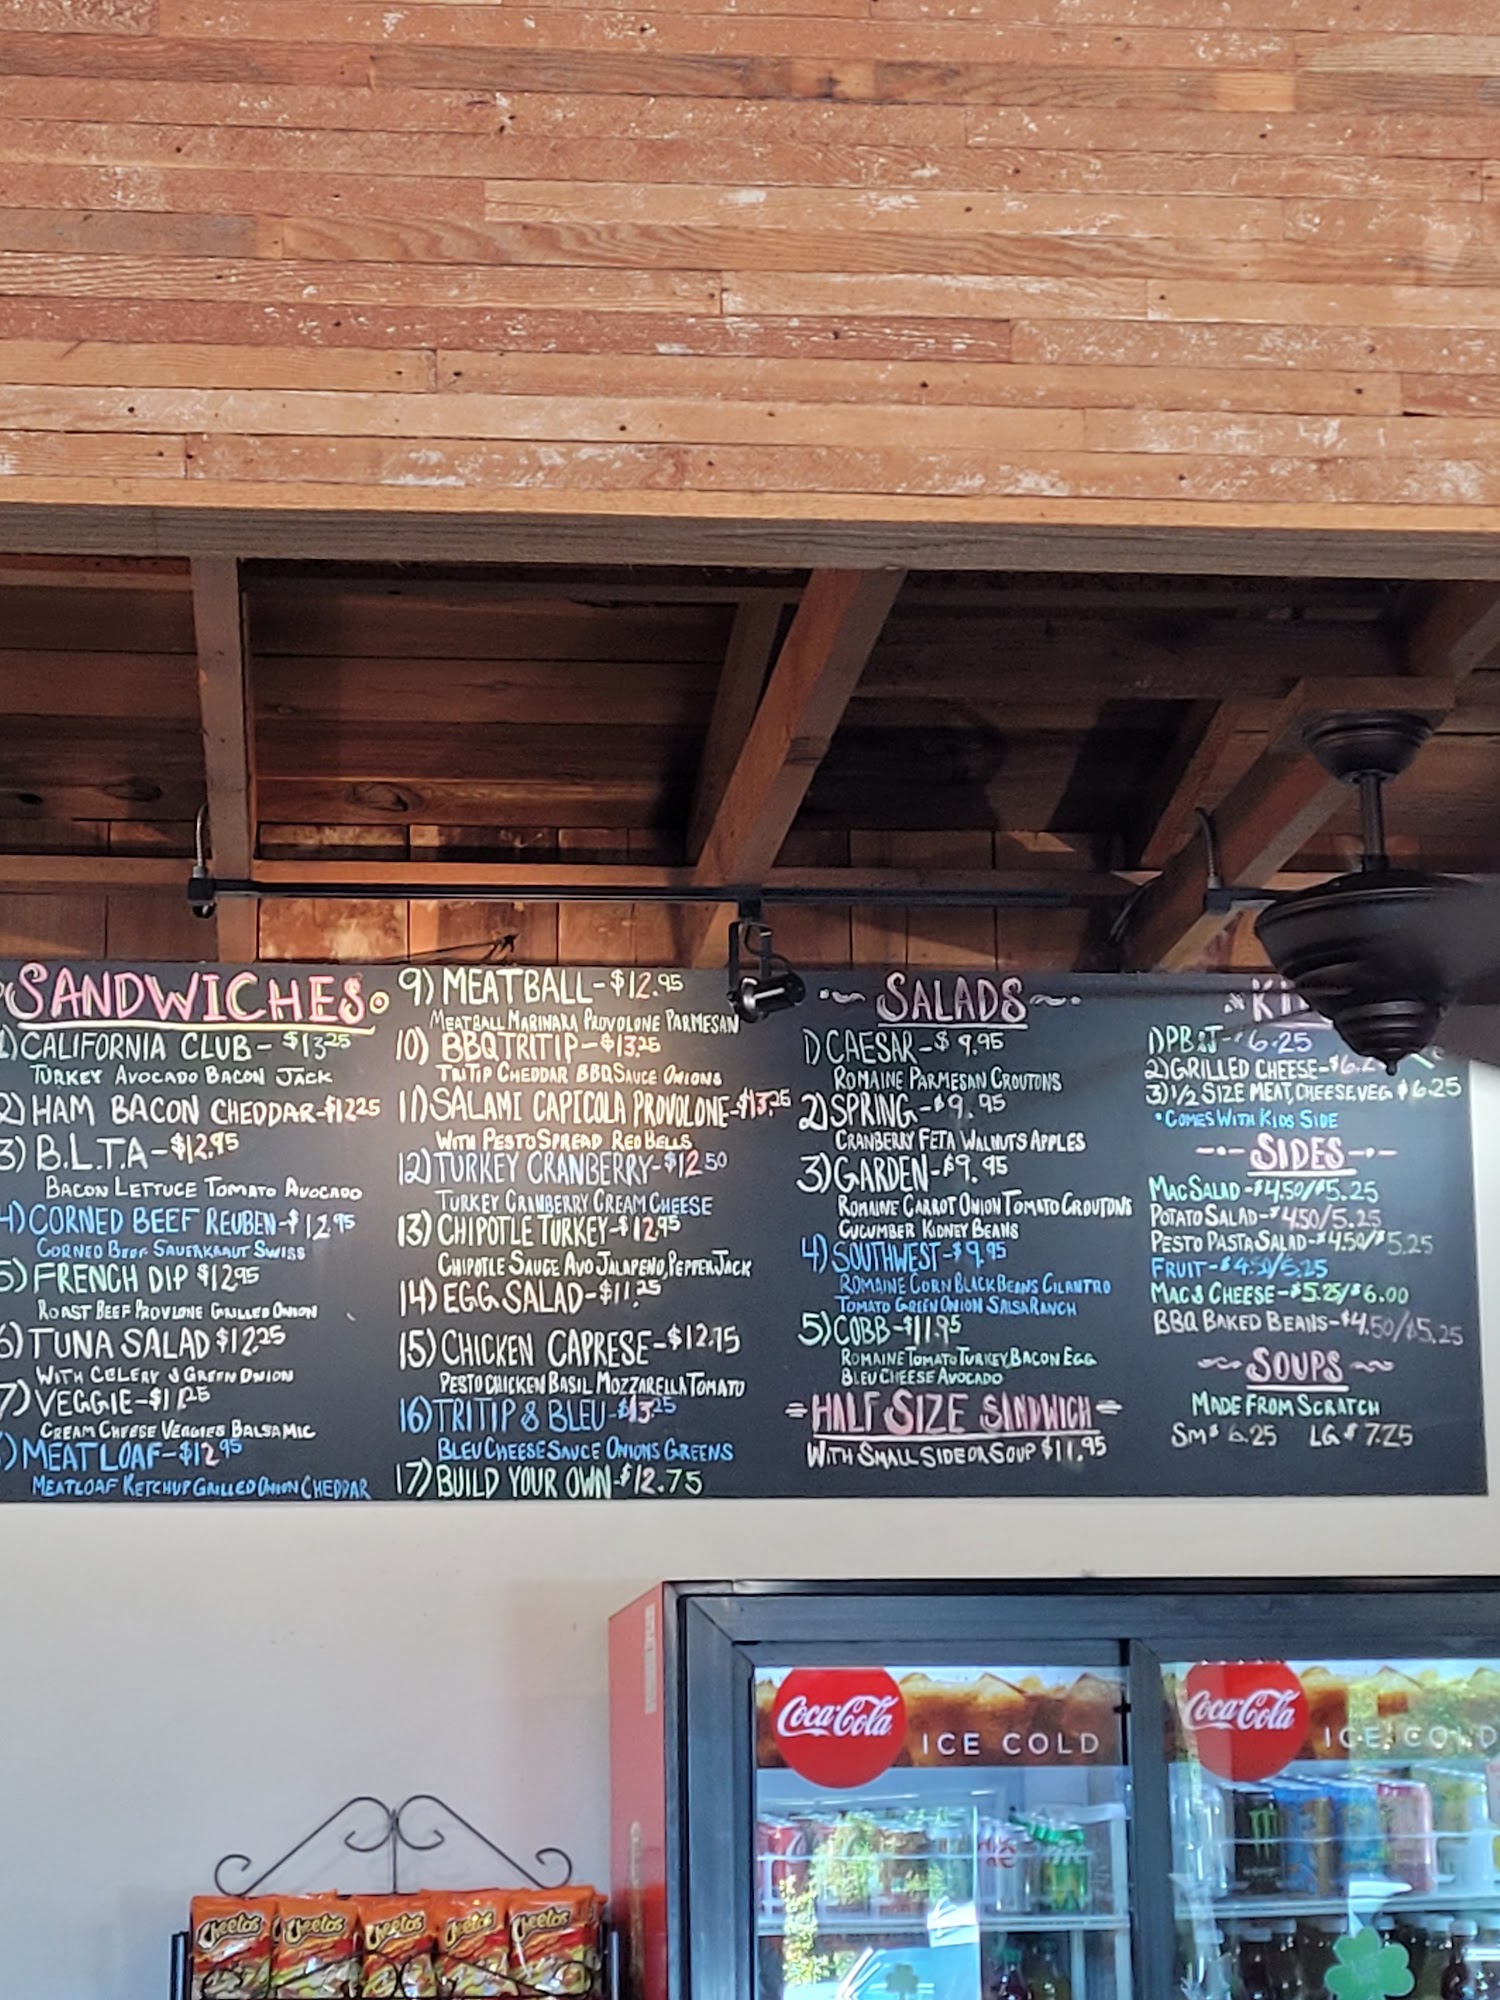 SANDWICHES
1) CALIFORNIA CLUB - $13.25
TURKEY AVOCADO BACON JACK
2) HAM BACON CHEDDAR - $12.25
3) B.L.T.A - $12.95
BACON LETTUCE TOMATO AVOCADO
4) CORNED BEEF REUBEN - $12.95
CORNED BEEF SAUERKRAUT SWISS
5) FRENCH DIP $12.95
ROAST BEEF PROVLONE GRILLED ONION
6) TUNA SALAD $12.25
WITH CELERY & GREEN ONION
7) VEGGIE - $11.25
CREAM CHEESE VEGGIES BALSAMIC
) MEATLOAF - $12.95
MEATLOAF KETCHUP GRILLED ONION CHEDDAR
9) MEATBALL - $12.95
MEATBALL MARINARA PROVOLONE PARMESAN
10) BBQ TRITIP - $13.25
TRITIP CHEDDAR BBQ SAUCE ONIONS
11) SALAMI CAPICOLA PROVOLONE - $13.25
WITH PESTO SPREAD RED BELLS
12) TURKEY CRANBERRY - $12.50
TURKEY CRANBERRY CREAM CHEESE
13) CHIPOTLE TURKEY - $12.95
CHIPOTLE SAUCE AVO JALAPENO, PEPPER JACK
14) EGG SALAD - $11.25
15) CHICKEN CAPRESE - $12.75
PESTO CHICKEN BASIL MOZZARELLA TOMATO
16) TRITIP & BLEU - $13.25
BLEU CHEESE SAUCE ONIONS GREENS
17) BUILD YOUR OWN - $12.75
SALADS
1) CAESAR - $9.95
ROMAINE PARMESAN CROUTONS
2) SPRING - $9.95
CRANBERRY FETA WALNUTS APPLES
3) GARDEN - $9.95
ROMAINE CARROT ONION TOMATO CROUTONS
CUCUMBER KIDNEY BEANS
4) SOUTHWEST - $9.95
ROMAINE CORN BLACK BEANS CILANTRO
TOMATO GREEN ONION SALSA RANCH
5) COBB - $11.95
ROMAINE TOMATO TURKEY BACON EGG
BLEU CHEESE AVOCADO
HALF SIZE SANDWICH
WITH SMALL SIDE OR SOUP $11.95
1) PB&J - 6.25
2) GRILLED CHEESE -
3) 1/2 SIZE MEAT, CHEESE, VEG $6.25
*COMES WITH KIDS SIDE
SIDES
MAC SALAD - $4.50/$5.25
POTATO SALAD - $4.50/5.25
PESTO PASTA SALAD - $4.50/$5.25
FRUIT - $4.50/5.25
MAC & CHEESE - $5.25/$6.00
BBQ BAKED BEANS - $4.50/$5.25
SOUPS
MADE FROM SCRATCH
SM $6.25 LG $7.25
Coca-Cola ICE COLD
Coca-Cola ICE COLD
Cheetos Cheetos Cheetos Cheetos Cheetos